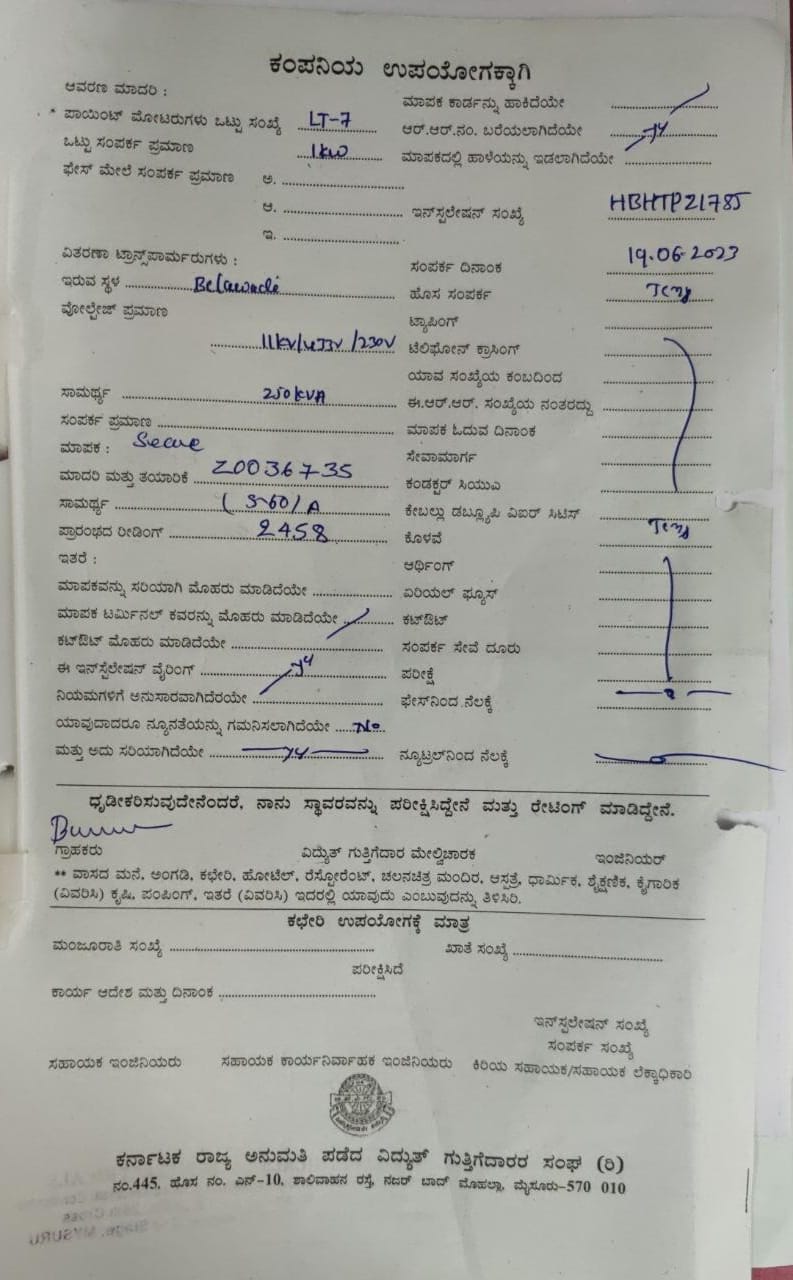 ಕಂಪನಿಯ ಉಪಯೋಗಕ್ಕಾಗಿ
ಆವರಣ ಮಾದರಿ :
* ಪಾಯಿಂಟ್ ಮೋಟರುಗಳು ಒಟ್ಟು ಸಂಖ್ಯೆ LT-7
ಒಟ್ಟು ಸಂಪರ್ಕ ಪ್ರಮಾಣ 1kW
ಫೇಸ್ ಮೇಲೆ ಸಂಪರ್ಕ ಪ್ರಮಾಣ ಅ.
ಆ.
ಇ.
ವಿತರಣಾ ಟ್ರಾನ್ಸ್‌ಪಾರ್ಮರುಗಳು :
ಇರುವ ಸ್ಥಳ Belawadi
ವೋಲ್ಟೇಜ್ ಪ್ರಮಾಣ
11KV/433V/230V
ಸಾಮರ್ಥ್ಯ 250KVA
ಸಂಪರ್ಕ ಪ್ರಮಾಣ
ಮಾಪಕ : Secure
ಮಾದರಿ ಮತ್ತು ತಯಾರಿಕೆ Z0036735
ಸಾಮರ್ಥ್ಯ (5-60)A
ಪ್ರಾರಂಭದ ರೀಡಿಂಗ್ 2458
ಇತರೆ :
ಮಾಪಕವನ್ನು ಸರಿಯಾಗಿ ಮೊಹರು ಮಾಡಿದೆಯೇ
ಮಾಪಕ ಟರ್ಮಿನಲ್ ಕವರನ್ನು ಮೊಹರು ಮಾಡಿದೆಯೇ
ಕಟ್‌ಔಟ್ ಮೊಹರು ಮಾಡಿದೆಯೇ
ಈ ಇನ್‌ಸ್ಟಲೇಷನ್ ವೈರಿಂಗ್
ನಿಯಮಗಳಿಗೆ ಅನುಸಾರವಾಗಿದೆರಯೇ
ಯಾವುದಾದರೂ ನ್ಯೂನತೆಯನ್ನು ಗಮನಿಸಲಾಗಿದೆಯೇ No
ಮತ್ತು ಅದು ಸರಿಯಾಗಿದೆಯೇ
ಮಾಪಕ ಕಾರ್ಡನ್ನು ಹಾಕಿದೆಯೇ
ಆರ್.ಆರ್.ನಂ. ಬರೆಯಲಾಗಿದೆಯೇ
ಮಾಪಕದಲ್ಲಿ ಹಾಳೆಯನ್ನು ಇಡಲಾಗಿದೆಯೇ
ಇನ್‌ಸ್ಟಲೇಷನ್ ಸಂಖ್ಯೆ HBHTP21785
ಸಂಪರ್ಕ ದಿನಾಂಕ 19.06.2023
ಹೊಸ ಸಂಪರ್ಕ Temp
ಟ್ಯಾಪಿಂಗ್
ಟೆಲಿಫೋನ್ ಕ್ರಾಸಿಂಗ್
ಯಾವ ಸಂಖ್ಯೆಯ ಕಂಬದಿಂದ
ಈ.ಆರ್.ಆರ್. ಸಂಖ್ಯೆಯ ನಂತರದ್ದು
ಮಾಪಕ ಓದುವ ದಿನಾಂಕ
ಸೇವಾಮಾರ್ಗ
ಕಂಡಕ್ಟರ್ ಸಿಯುಎ
ಕೇಬಲ್ಲು ಡಬ್ಲ್ಯೂಪಿ ಎಐರ್ ಸಿಟಿಸ್
ಕೊಳವೆ Temp
ಆರ್ಥಿಂಗ್
ಏರಿಯಲ್ ಫ್ಯೂಸ್
ಕಟ್‌ಔಟ್
ಸಂಪರ್ಕ ಸೇವೆ ದೂರು
ಪರೀಕ್ಷೆ
ಫೇಸ್‌ನಿಂದ ನೆಲಕ್ಕೆ
ನ್ಯೂಟ್ರಲ್‌ನಿಂದ ನೆಲಕ್ಕೆ
ಧೃಡೀಕರಿಸುವುದೇನೆಂದರೆ, ನಾನು ಸ್ಥಾವರವನ್ನು ಪರೀಕ್ಷಿಸಿದ್ದೇನೆ ಮತ್ತು ರೇಟಿಂಗ್ ಮಾಡಿದ್ದೇನೆ.
ಗ್ರಾಹಕರು ವಿದ್ಯುತ್ ಗುತ್ತಿಗೆದಾರ ಮೇಲ್ವಿಚಾರಕ ಇಂಜಿನಿಯರ್
** ವಾಸದ ಮನೆ, ಅಂಗಡಿ, ಕಛೇರಿ, ಹೋಟೆಲ್, ರೆಸ್ಟೋರೆಂಟ್, ಚಲನಚಿತ್ರ ಮಂದಿರ, ಆಸ್ಪತ್ರೆ, ಧಾರ್ಮಿಕ, ಶೈಕ್ಷಣಿಕ, ಕೈಗಾರಿಕ
(ವಿವರಿಸಿ) ಕೃಷಿ, ಪಂಪಿಂಗ್, ಇತರೆ (ವಿವರಿಸಿ) ಇದರಲ್ಲಿ ಯಾವುದು ಎಂಬುವುದನ್ನು ತಿಳಿಸಿರಿ.
ಕಛೇರಿ ಉಪಯೋಗಕ್ಕೆ ಮಾತ್ರ
ಮಂಜೂರಾತಿ ಸಂಖ್ಯೆ ಖಾತೆ ಸಂಖ್ಯೆ
ಪರೀಕ್ಷಿಸಿದೆ
ಕಾರ್ಯ ಆದೇಶ ಮತ್ತು ದಿನಾಂಕ
ಇನ್‌ಸ್ಟಲೇಷನ್ ಸಂಖ್ಯೆ
ಸಂಪರ್ಕ ಸಂಖ್ಯೆ
ಸಹಾಯಕ ಇಂಜಿನಿಯರು ಸಹಾಯಕ ಕಾರ್ಯನಿರ್ವಾಹಕ ಇಂಜಿನಿಯರು ಕಿರಿಯ ಸಹಾಯಕ/ಸಹಾಯಕ ಲೆಕ್ಕಾಧಿಕಾರಿ
ಕರ್ನಾಟಕ ರಾಜ್ಯ ಅನುಮತಿ ಪಡೆದ ವಿದ್ಯುತ್ ಗುತ್ತಿಗೆದಾರರ ಸಂಘ (ರಿ)
ನಂ.445, ಹೊಸ ನಂ. ಎನ್-10, ಶಾಲಿವಾಹನ ರಸ್ತೆ, ನಜರ್ ಬಾದ್ ಮೊಹಲ್ಲಾ, ಮೈಸೂರು-570 010